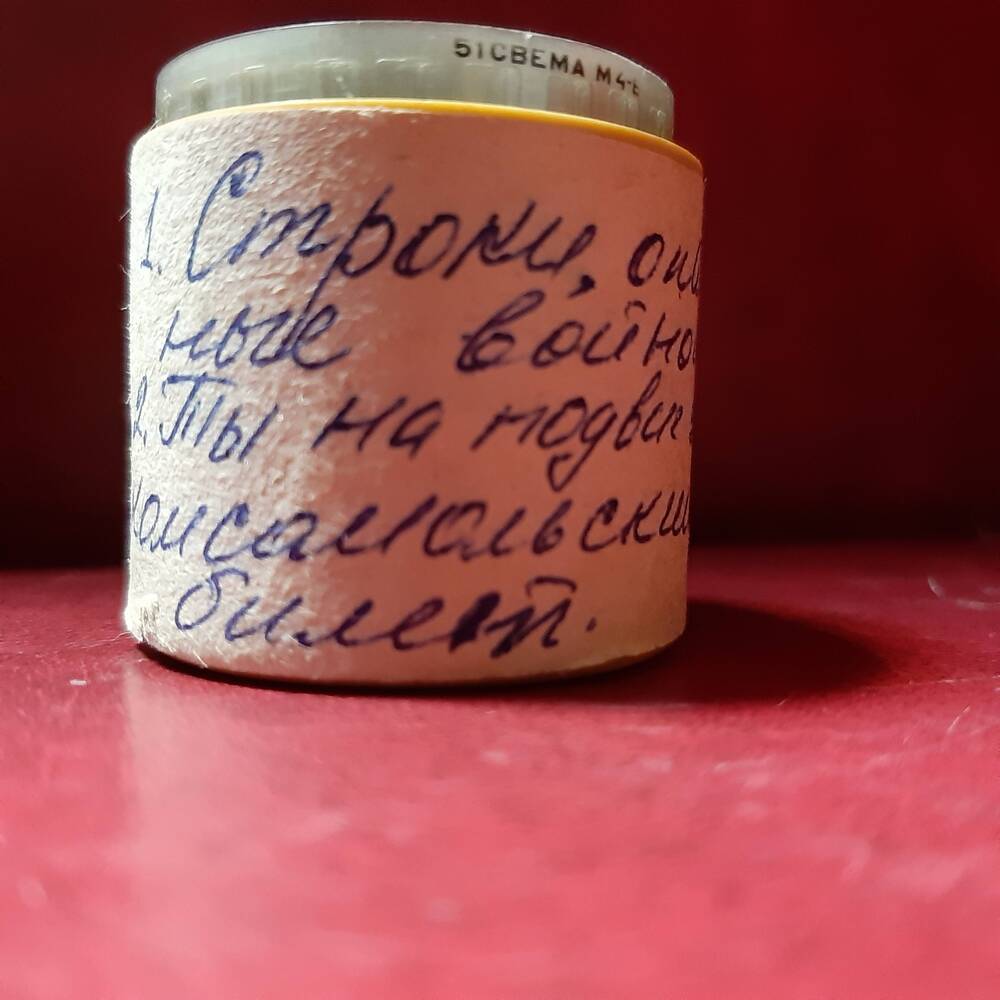 51СВЕМА М4-Е
1. Строки,
ные войно
2. Ты на подвиг
комсомольский
билет.